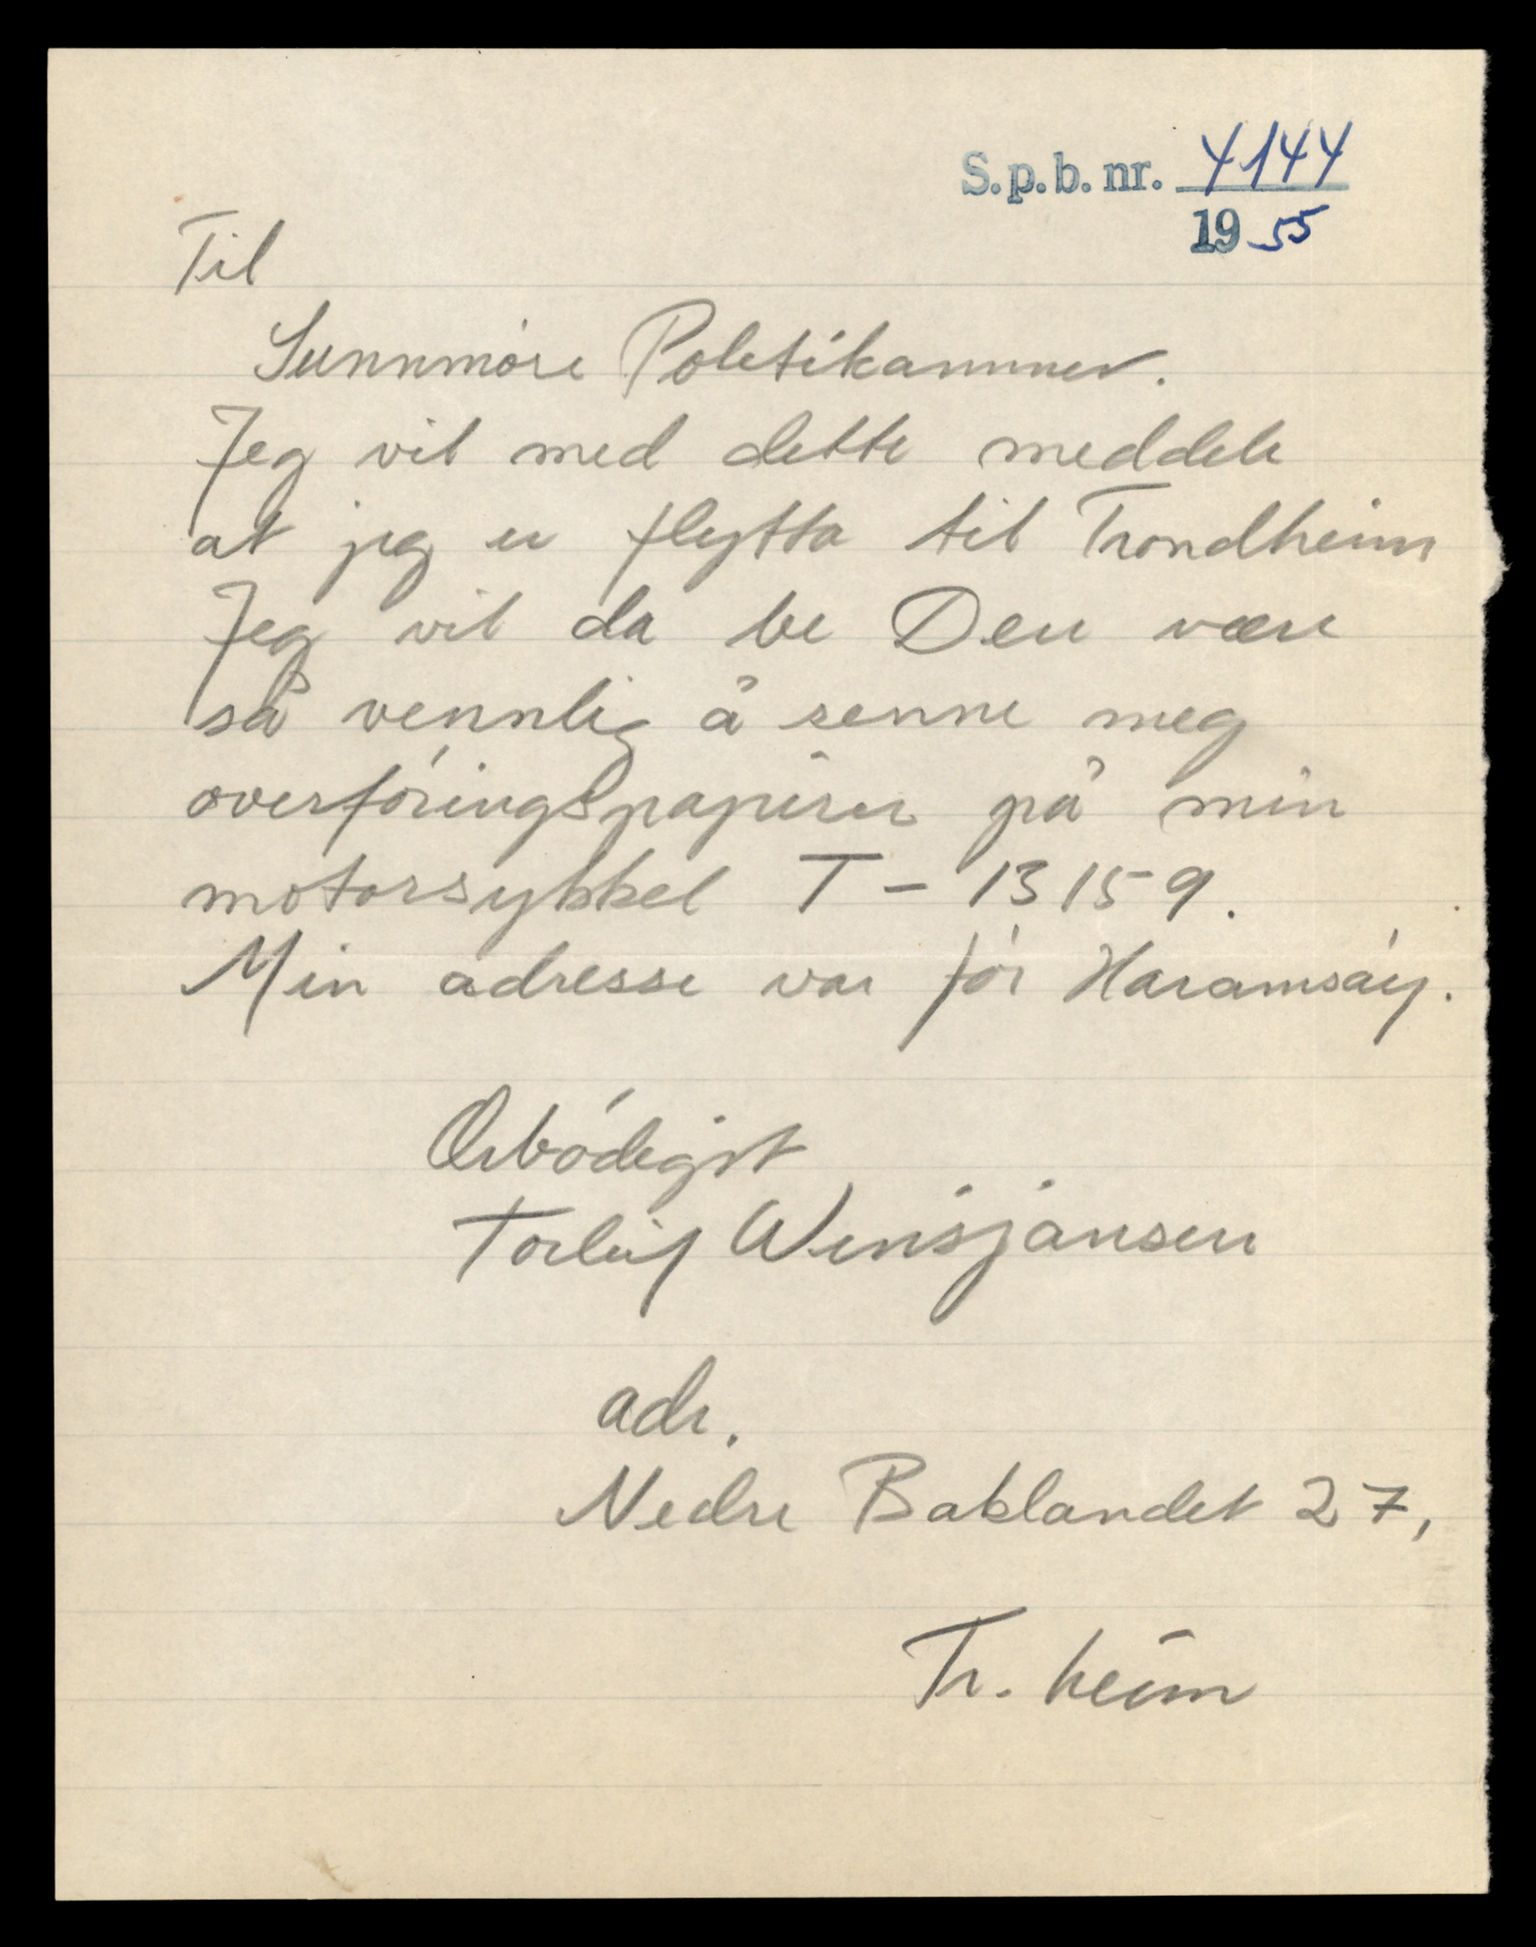 S.p.b. nr. 4144
1955
Til
Sunnmóre Politikammer.
Jeg vil med dette meddele
at jeg er flytta til Trondheim
Jeg vil da be Den være
så vennlig å senne meg
overfóringspapirer på min
motorsykkel T - 13159.
Min adresse var fór Haramsóy.
Ærbódigst
Torleif Winsjansen
adr.
Nedre Baklandet 27,
Tr. heim